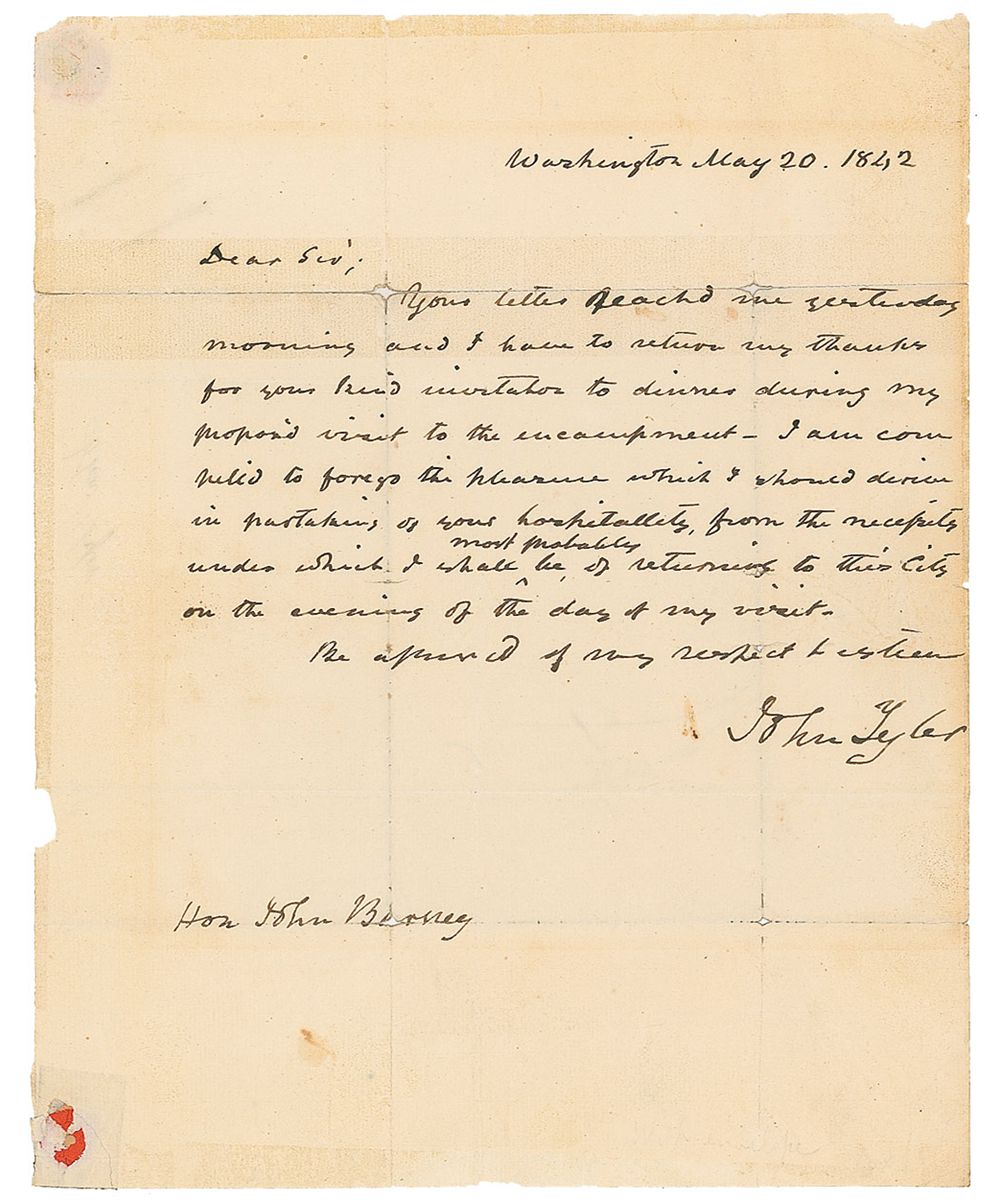 Washington May 20. 1842
Dear Sir;
Your letter reach'd me yesterday
morning and I have to return my thanks
for your kind invitation to dinner during my
propos'd visit to the encampment - I am com
pell'd to forego the pleasure which I should derive
in partaking of your hospitallity, from the necessity
most probably
under which I shall be, of returning to this City
on the evening of the day of my visit -
Be assured of my respect & esteem
John Tyler
Hon John Barney